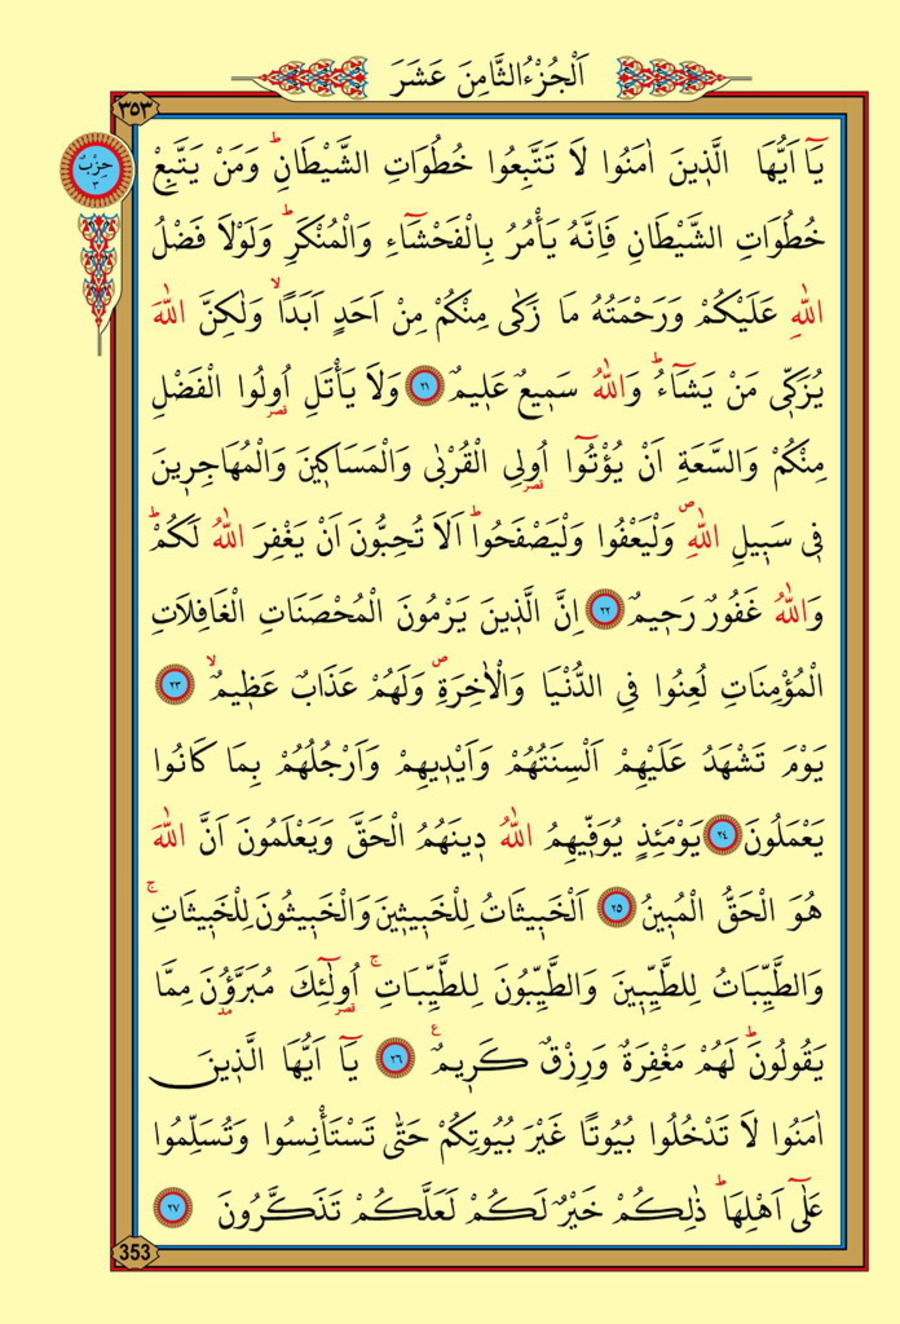 اَلْجُزْءُ الثَّامِنَ عَشَرَ
٣٥٣
حِزْبٌ
٣
يَٓا اَيُّهَا الَّذ۪ينَ اٰمَنُوا لَا تَتَّبِعُوا خُطُوَاتِ الشَّيْطَانِۜ وَمَنْ يَتَّبِعْ
خُطُوَاتِ الشَّيْطَانِ فَاِنَّهُ يَأْمُرُ بِالْفَحْشَٓاءِ وَالْمُنْكَرِۜ وَلَوْلَا فَضْلُ
اللّٰهِ عَلَيْكُمْ وَرَحْمَتُهُ مَا زَكٰى مِنْكُمْ مِنْ اَحَدٍ اَبَدًاۙ وَلٰكِنَّ اللّٰهَ
يُزَكّ۪ي مَنْ يَشَٓاءُۜ وَاللّٰهُ سَم۪يعٌ عَل۪يمٌ ٢١ وَلَا يَأْتَلِ اُو۬لُوا الْفَضْلِ
قصر
مِنْكُمْ وَالسَّعَةِ اَنْ يُؤْتُٓوا اُو۬لِي الْقُرْبٰى وَالْمَسَاك۪ينَ وَالْمُهَاجِر۪ينَ
قصر
ف۪ي سَب۪يلِ اللّٰهِۖ وَلْيَعْفُوا وَلْيَصْفَحُواۜ اَلَا تُحِبُّونَ اَنْ يَغْفِرَ اللّٰهُ لَكُمْۜ
وَاللّٰهُ غَفُورٌ رَح۪يمٌ ٢٢ اِنَّ الَّذ۪ينَ يَرْمُونَ الْمُحْصَنَاتِ الْغَافِلَاتِ
الْمُؤْمِنَاتِ لُعِنُوا فِي الدُّنْيَا وَالْاٰخِرَةِۖ وَلَهُمْ عَذَابٌ عَظ۪يمٌۙ ٢٣
يَوْمَ تَشْهَدُ عَلَيْهِمْ اَلْسِنَتُهُمْ وَاَيْد۪يهِمْ وَاَرْجُلُهُمْ بِمَا كَانُوا
يَعْمَلُونَ ٢٤ يَوْمَئِذٍ يُوَفّ۪يهِمُ اللّٰهُ د۪ينَهُمُ الْحَقَّ وَيَعْلَمُونَ اَنَّ اللّٰهَ
هُوَ الْحَقُّ الْمُب۪ينُ ٢٥ اَلْخَب۪يثَاتُ لِلْخَب۪يث۪ينَ وَالْخَب۪يثُونَ لِلْخَب۪يثَاتِۚ
وَالطَّيِّبَاتُ لِلطَّيِّب۪ينَ وَالطَّيِّبُونَ لِلطَّيِّبَاتِۚ اُو۬لٰٓئِكَ مُبَرَّؤُ۫نَ مِمَّا
قصر مد
يَقُولُونَۜ لَهُمْ مَغْفِرَةٌ وَرِزْقٌ كَر۪يمٌ ع ٢٦ يَٓا اَيُّهَا الَّذ۪ينَ
اٰمَنُوا لَا تَدْخُلُوا بُيُوتًا غَيْرَ بُيُوتِكُمْ حَتّٰى تَسْتَأْنِسُوا وَتُسَلِّمُوا
عَلٰٓى اَهْلِهَاۜ ذٰلِكُمْ خَيْرٌ لَكُمْ لَعَلَّكُمْ تَذَكَّرُونَ ٢٧
353